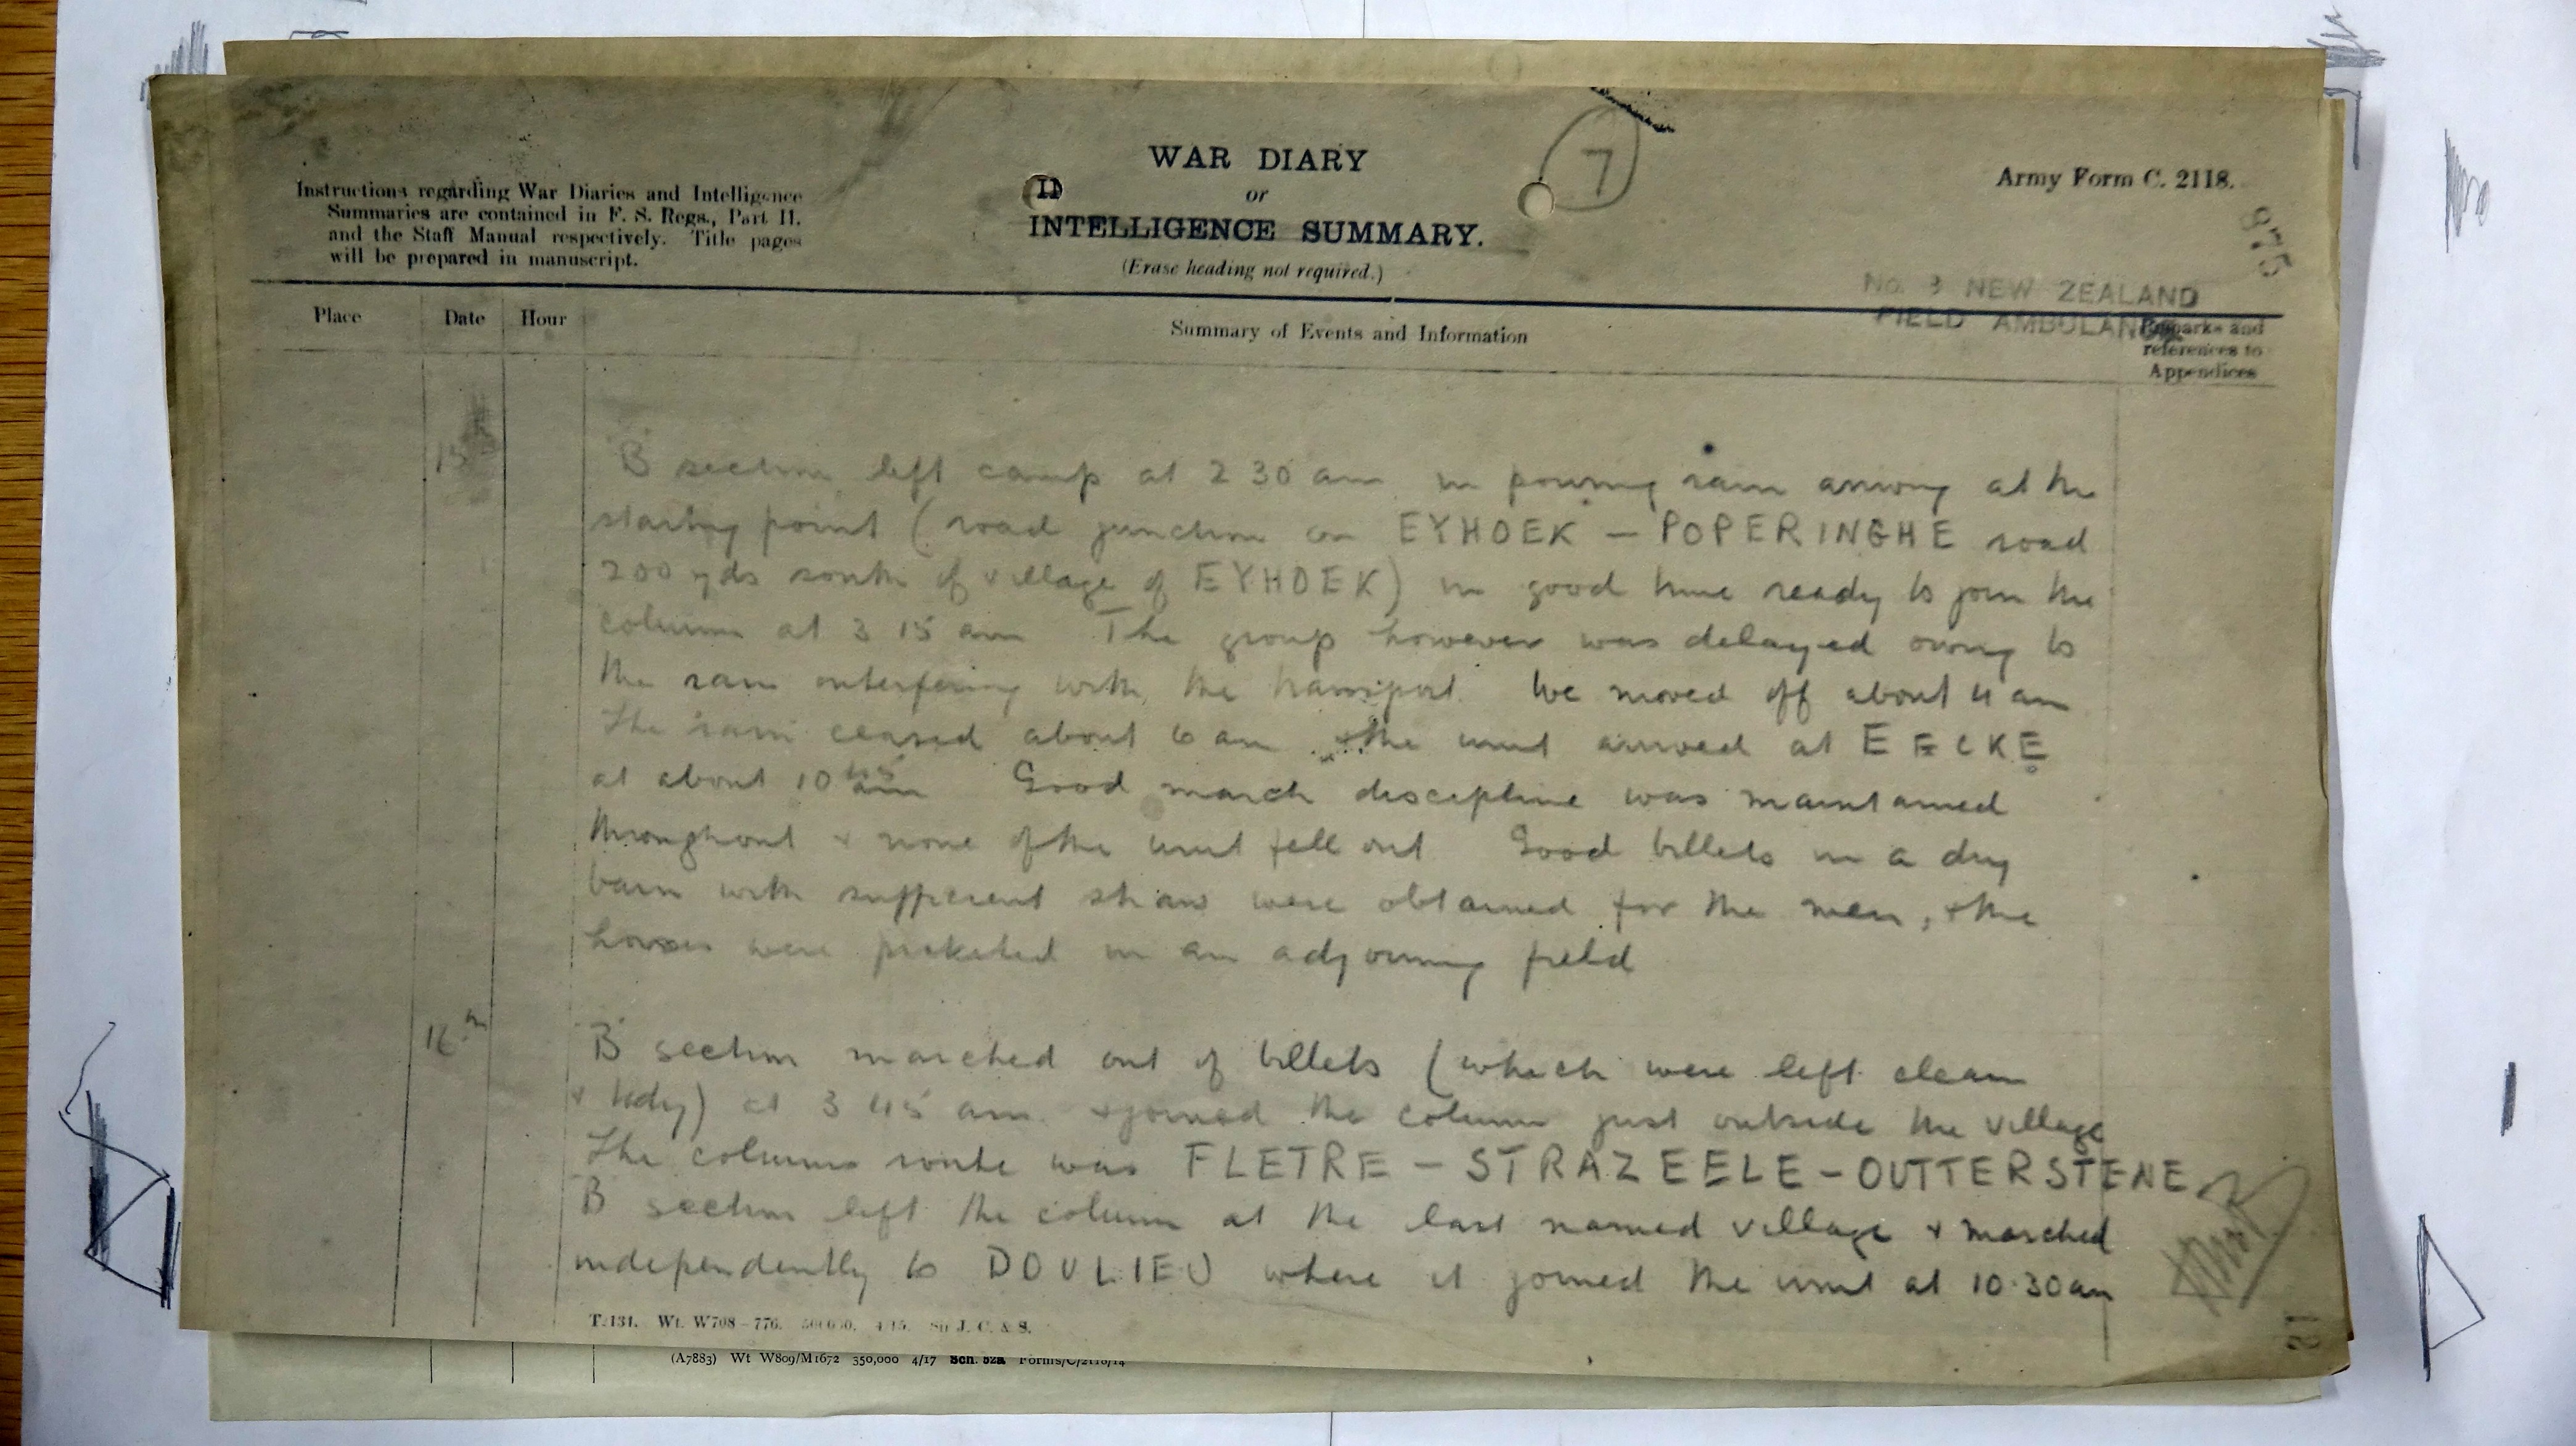 WAR DIARY
or
INTELLIGENCE SUMMARY.
(Erase heading not required.)
7
Army Form C. 2118.
875
Instructions regarding War Diaries and Intelligence
Summaries are contained in F. S. Regs., Part II.
and the Staff Manual respectively. Title pages
will be prepared in manuscript.
No. 3 NEW ZEALAND
FIELD AMBULANCE
Place
Date
Hour
Summary of Events and Information
Remarks and
references to
Appendices
15
B section left camp at 2 30 am in pouring rain arriving at the
starting point (road junction on EYHOEK - POPERINGHE road
200 yds south of village of EYHOEK) in good time ready to join the
column at 3 15 am The group however was delayed owing to
the rain interfering with the transport. We moved off about 4 am
The rain ceased about 6 am & the unit arrived at EECKE
at about 10 45 am Good march discipline was maintained
throughout & none of the unit fell out Good billets in a dry
barn with sufficient straw were obtained for the men, & the
horses were picketed in an adjoining field
16th
B section marched out of billets (which were left clean
& tidy) at 3 45 am & joined the column just outside the village
The columns route was FLETRE - STRAZEELE - OUTTERSTENE
B section left the column at the last named village & marched
independently to DOULIEU where it joined the unit at 10.30 am
T.131. Wt. W708-776. 500000. 4/15. Sir J. C. & S.
(A7883) Wt W809/M1672 350,000 4/17 Sch. 52a Forms/C/2118/14